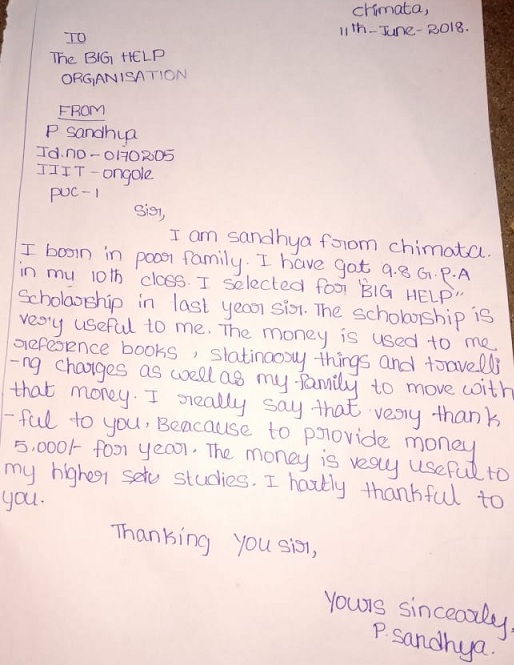 Chimata,
11th-June-2018.
TO
The BIG HELP
ORGANISATION
FROM
P Sandhya
Id.no-0170205
IIIT-ongole
PUC-1
Sir,
I am sandhya from chimata.
I born in poor family. I have got 9.8 G.P.A
in my 10th class. I selected for "BIG HELP"
Scholarship in last year sir. The scholarship is
very useful to me. The money is used to me
reference books, stationory things and travelli
-ng charges as well as my family to move with
that money. I really say that very thank
-ful to you, Beacause to provide money
5,000/- for year. The money is very useful to
my higher studies. I hartly thankful to
you.
Thanking you sir,
Yours sincearly,
P. Sandhya.